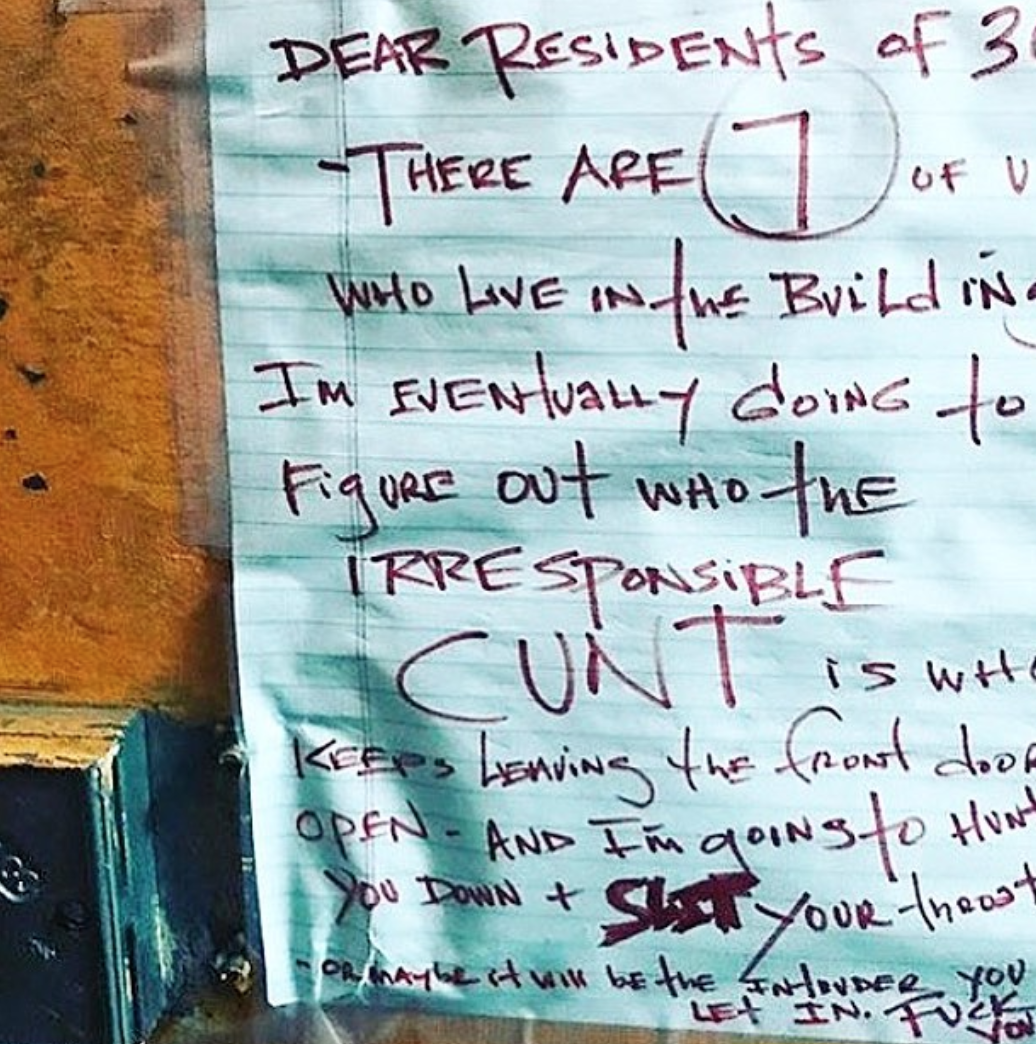 DEAR RESIDENTS OF 3
- THERE ARE 7 OF
WHO LIVE IN the BuiLdiNg
Im EVENtuaLLY GOiNG to
FiguRE OUt WHO thE
IRRESpONSiBLE
CUNT iS WHO
KEEPS LEAViNg the fRONt dOOR
OPEN - AND I'm gOiNg to HUNt
YOU DOWN + SLIT YOUR thROAt
- OR MAYBE it Will be the INtRUDER YOU
LEt IN. FUCK
YOU